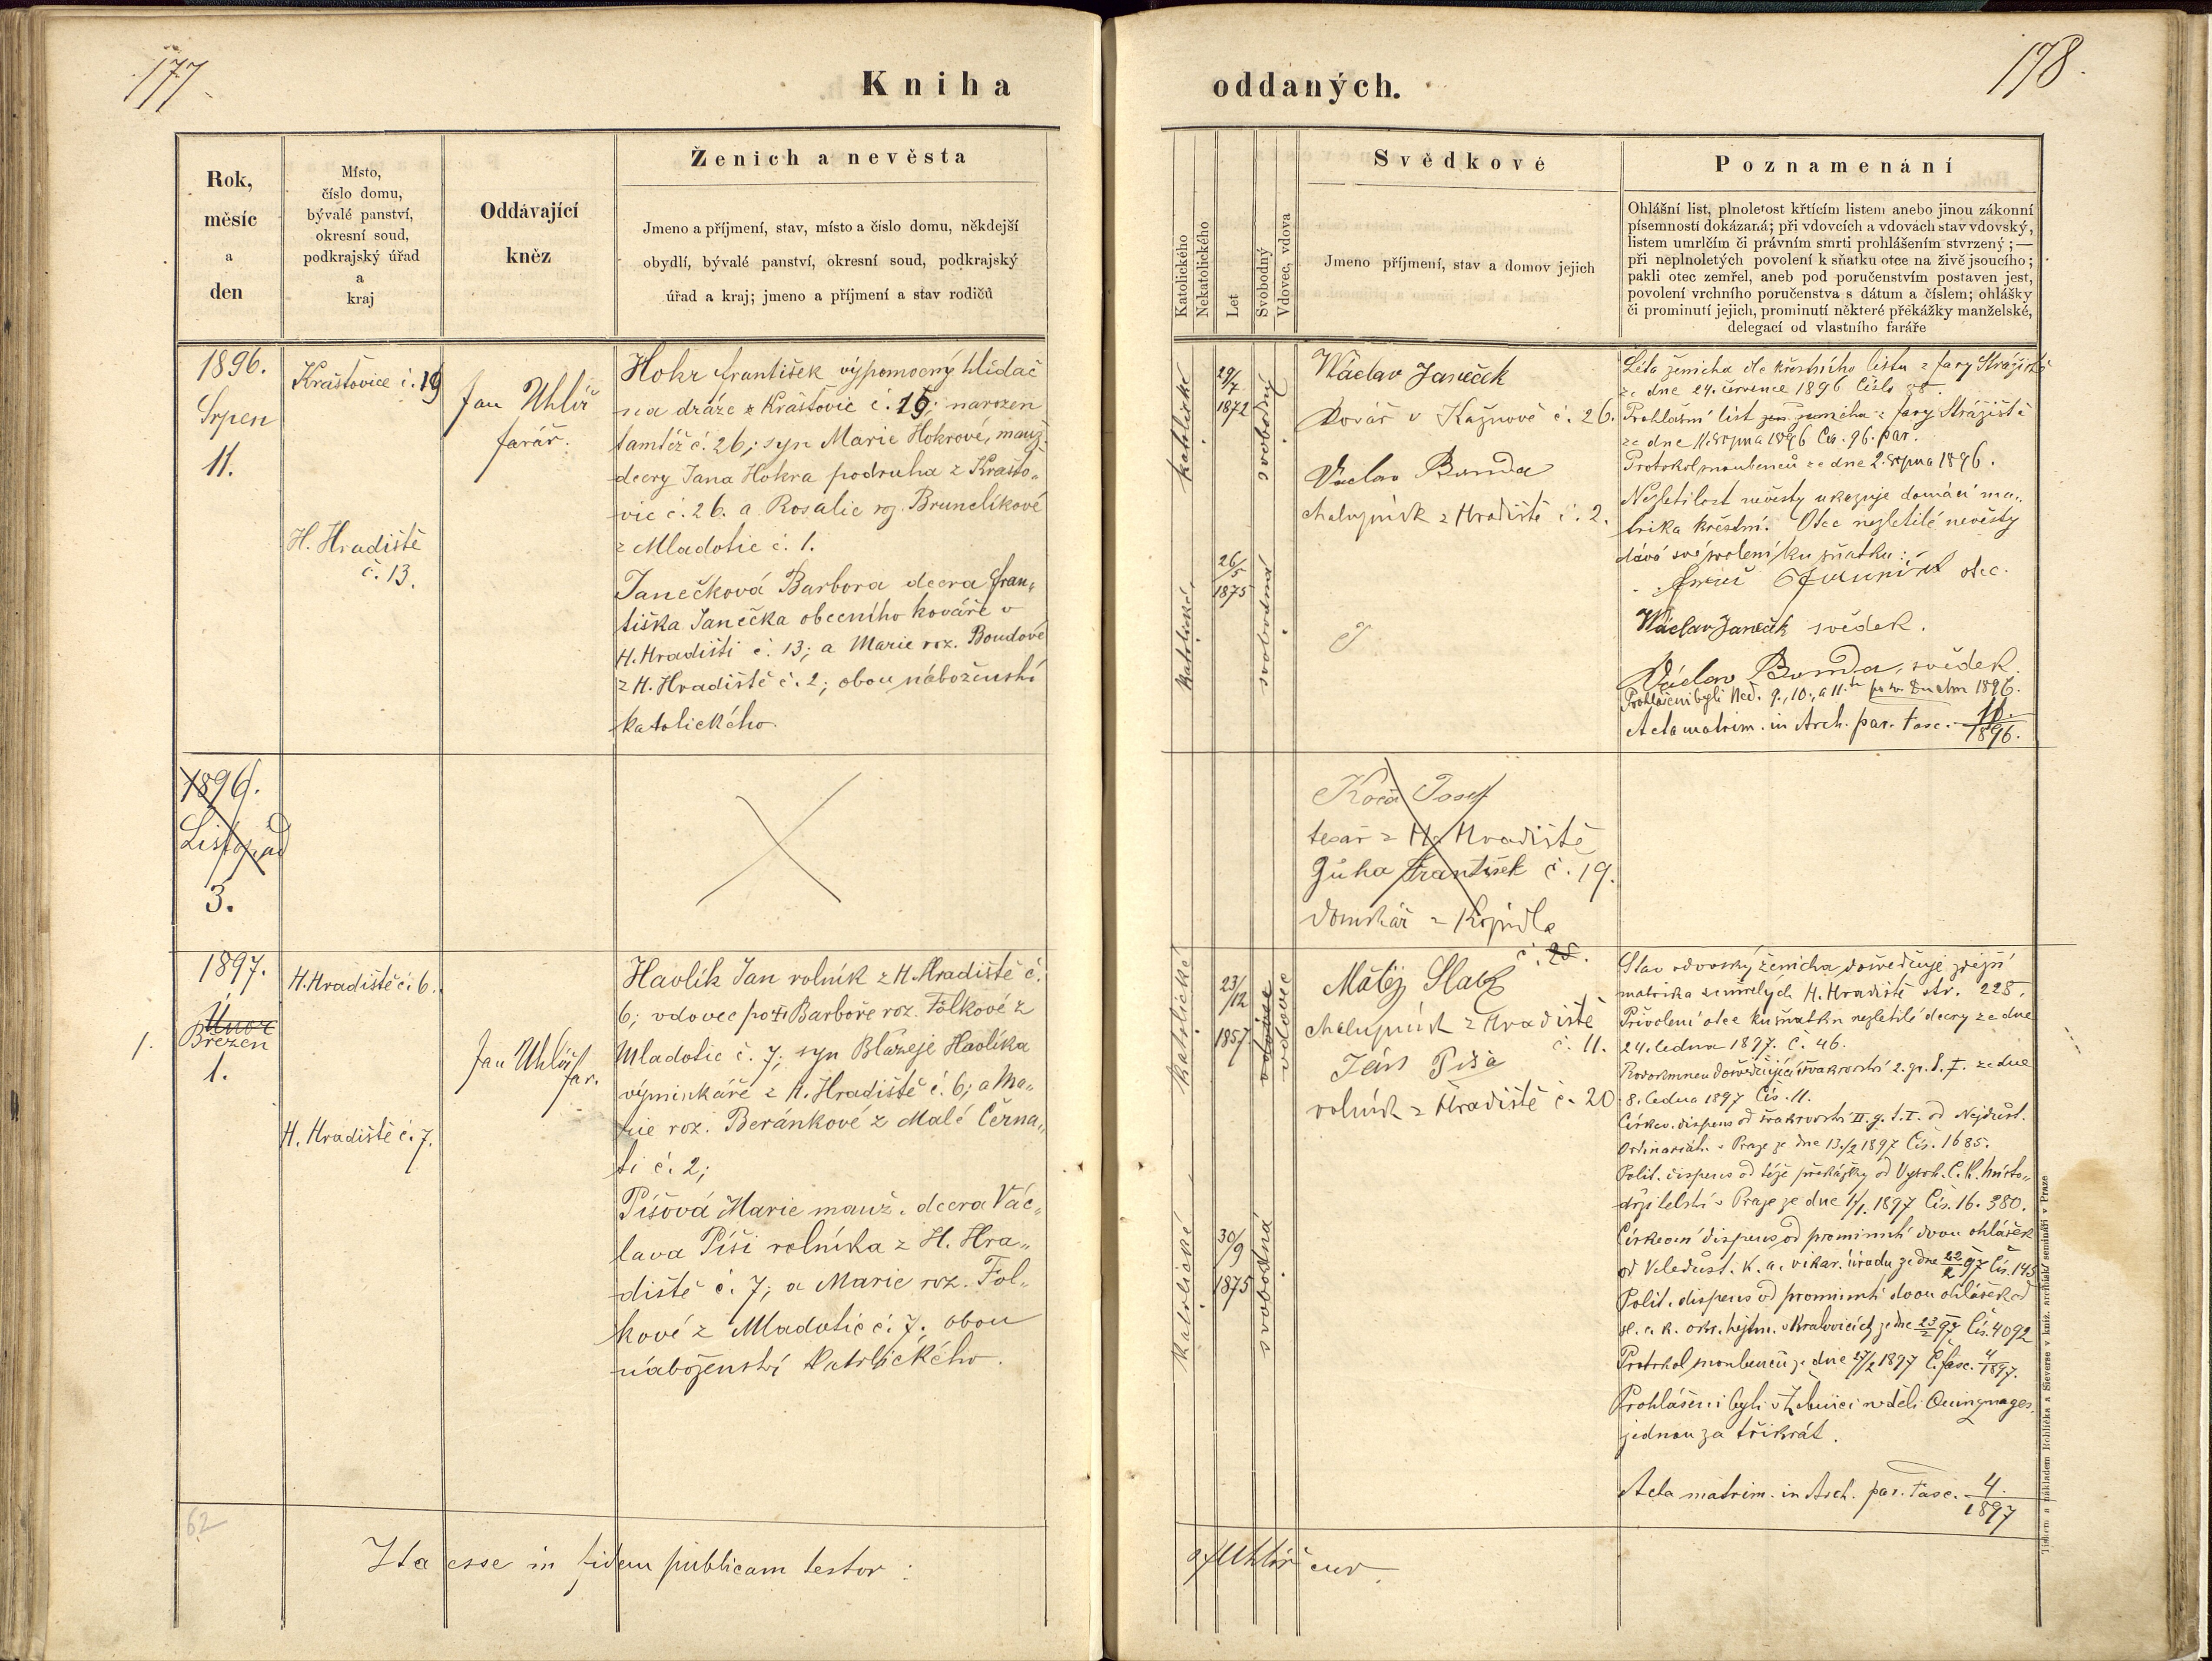 177
178
Kniha oddaných.
Rok,
měsíc
a
den
Místo,
číslo domu,
bývalé panství,
okresní soud,
podkrajský úřad
a
kraj
Oddávající
kněz
Ženich a nevěsta
Jmeno a příjmení, stav, místo a číslo domu, někdejší
obydlí, bývalé panství, okresní soud, podkrajský
úřad a kraj; jmeno a příjmení a stav rodičů
Katolického
Nekatolického
Let
Svobodný
Vdovec, vdova
Svědkové
Jmeno příjmení, stav a domov jejich
Poznamenání
Ohlášní list, plnoletost křtícím listem anebo jinou zákonní
písemností dokázaná; při vdovcích a vdovách stav vdovský,
listem umrlčím či právním smrti prohlášením stvrzený; —
při neplnoletých povolení k sňatku otce na živě jsoucího;
pakli otec zemřel, aneb pod poručenstvím postaven jest,
povolení vrchního poručenstva s dátum a číslem; ohlášky
či prominutí jejich, prominutí některé překážky manželské,
delegací od vlastního faráře
1896.
Srpen
11.
Kraštovice č. 19
H. Hradiště
č. 13.
Jan Uhlíř
farář.
Hohr František výpomocný hlídač
na dráze z Kraštovic č. 15; narozen
tamtéž č. 26; syn Marie Hohrové, manž.
dcery Jana Hohra podruha z Krašto„
vic č. 26. a Rosalie roz. Brunclíkové
z Mladotic č. 1.
Janečková Barbora dcera Fran„
tiška Janečka obecního kováře v
H. Hradišti č. 13; a Marie roz. Boudové
z H. Hradiště č. 2; obou náboženství
katolického.
katolické
29/7
1872
svobodný
katolické
26/5
1875
svobodná
Václav Janeček
kovář v Kažnově č. 26.
Václav Bouda
chalupník z Hradiště č. 2.
Léta ženicha dle křestního listu z fary Strážiště
ze dne 24. července 1896 číslo 38.
Prohlášní list ženicha z fary Strážiště
ze dne 11. srpna 1896 Čís. 96. par.
Protokol snoubenců ze dne 2. srpna 1896.
Nezletilost nevěsty ukazuje domácí ma„
trika křestní. Otec nezletilé nevěsty
dává své svolení ku sňatku:
otec.
Václav Janeček svědek.
Václav Bouda, svědek.
Prohlášeni byli Ned. 9., 10., a 11. 1896.
Acta matrim. in Arch. par. Fasc. 11./1896.
1896.
Listopad
3.
Josef
tesař z H. Hradiště
Gůha František č. 19.
domkář z Kopidla
č. 28.
1897.
Únor
Březen
1.
1.
H. Hradiště č. 6.
H. Hradiště č. 7.
Jan Uhlíř
far.
Havlík Jan rolník z H. Hradiště č.
6; vdovec po Barboře roz. Folkové z
Mladotic č. 7; syn Blažeje Havlíka
výminkáře z H. Hradiště č. 6; a Ma„
rie roz. Beránkové z Malé Černa„
ti č. 2;
Píšová Marie manž. dcera Vác„
lava Píši rolníka z H. Hra„
diště č. 7; a Marie roz. Fol„
kové z Mladotic č. 7; obou
náboženství katolického.
katolické
23/12
1857
vdovec
katolické
30/9
1875
svobodná
Matěj Slach
chalupník z Hradiště
č. 11.
Ján Píša
rolník z Hradiště č. 20
Stav vdovský ženicha dosvědčuje zdejší
matrika zemřelých H. Hradiště str. 228.
Přivolení otce ku sňatku nezletilé dcery ze dne
24. ledna 1897. č. 46.
Rodokmen dosvědčující švakrovství 2. gr. l. I. ze dne
8. ledna 1897 Čís. 11.
Církev. dispens od švakrovství II. g. l. I. od Nejdůst.
Ordinariátu v Praze ze dne 13./2 1897 Čís. 1685.
Polit. dispens od téže překážky od Vysok. C. k. místo„
držitelství v Praze ze dne 1897 Čís. 16.380.
Církevní dispens od prominutí dvou ohlášek
od Veledůst. k. a. vikar. úřadu ze dne 22/2 97 Čís. 145
Polit. dispens od prominutí dvou ohlášek od
sl. c. k. okr. hejtm. v Kralovicích ze dne 23/2 97 Čís. 4092
Protokol snoubenců ze dne 27/2 1897 Č. fasc. 4/1897.
Prohlášeni byli v neděli Quinquages.
jednou za třikrát.
Acta matrim. in Arch. par. Fasc. 4./1897
62
Ita esse in fidem publicam testor:
Uhlíř cur.
Tiskem a nákladem Rohlíčka a Sieverse v kníž. arcibisk. semináři v Praze